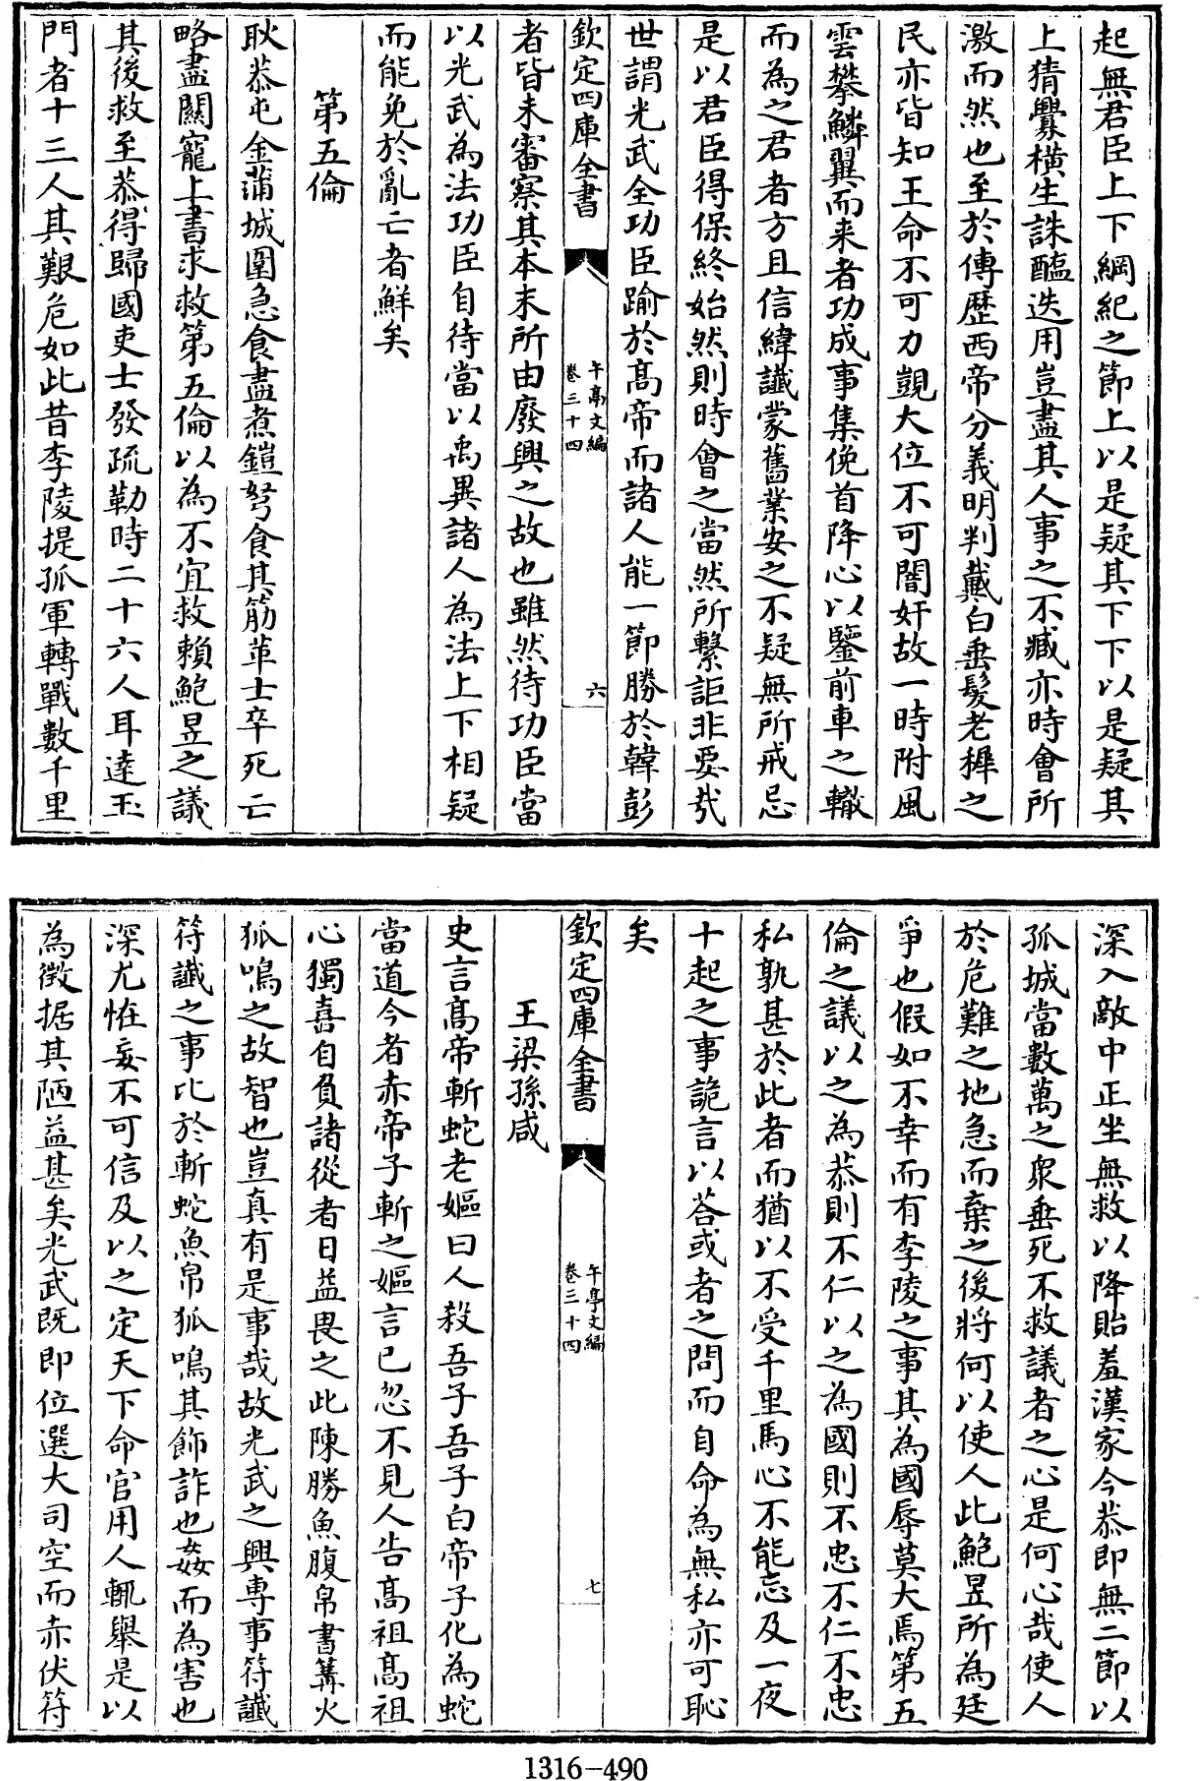 起無君臣上下綱紀之節上以是疑其下下以是疑其
上猜釁橫生誅醢迭用豈盡其人事之不臧亦時會所
激而然也至於傳歷西帝分義明判戴白垂髮老穉之
民亦皆知王命不可力覬大位不可闇奸故一時附風
雲攀鱗翼而来者功成事集俛首降心以鑒前車之轍
而為之君者方且信緯讖蒙舊業安之不疑無所戒忌
是以君臣得保終始然則時會之當然所繫詎非要㢤
世謂光武全功臣踰於髙帝而諸人能一節勝於韓彭
欽定四庫全書
午亭文編
卷三十四
六
者皆未審察其本末所由廢興之故也雖然待功臣當
以光武為法功臣自待當以禹異諸人為法上下相疑
而能免於亂亡者鮮矣
第五倫
耿恭屯金蒲城圍急食盡煮鎧弩食其筋革士卒死亡
略盡關寵上書求救第五倫以為不宜救賴鮑昱之議
其後救至恭得歸國吏士發疏勒時二十六人耳達玉
門者十三人其艱危如此昔李陵提孤軍轉戰數千里
深入敵中正坐無救以降貽羞漢家今恭即無二節以
孤城當數萬之衆垂死不救議者之心是何心哉使人
於危難之地急而棄之後將何以使人此鮑昱所為廷
爭也假如不幸而有李陵之事其為國辱莫大焉第五
倫之議以之為恭則不仁以之為國則不忠不仁不忠
私孰甚於此者而猶以不受千里馬心不能忘及一夜
十起之事詭言以荅或者之問而自命為無私亦可恥
矣
欽定四庫全書
午亭文編
卷三十四
七
王梁孫咸
史言髙帝斬蛇老嫗曰人殺吾子吾子白帝子化為蛇
當道今者赤帝子斬之嫗言已忽不見人告髙祖髙祖
心獨喜自負諸從者日益畏之此陳勝魚腹帛書篝火
狐鳴之故智也豈真有是事哉故光武之興專事符讖
符讖之事比於斬蛇魚帛狐鳴其飾詐也姦而為害也
深尤怪妄不可信及以之定天下命官用人輒舉是以
為徴据其陋益甚矣光武既即位選大司空而赤伏符
1316-490